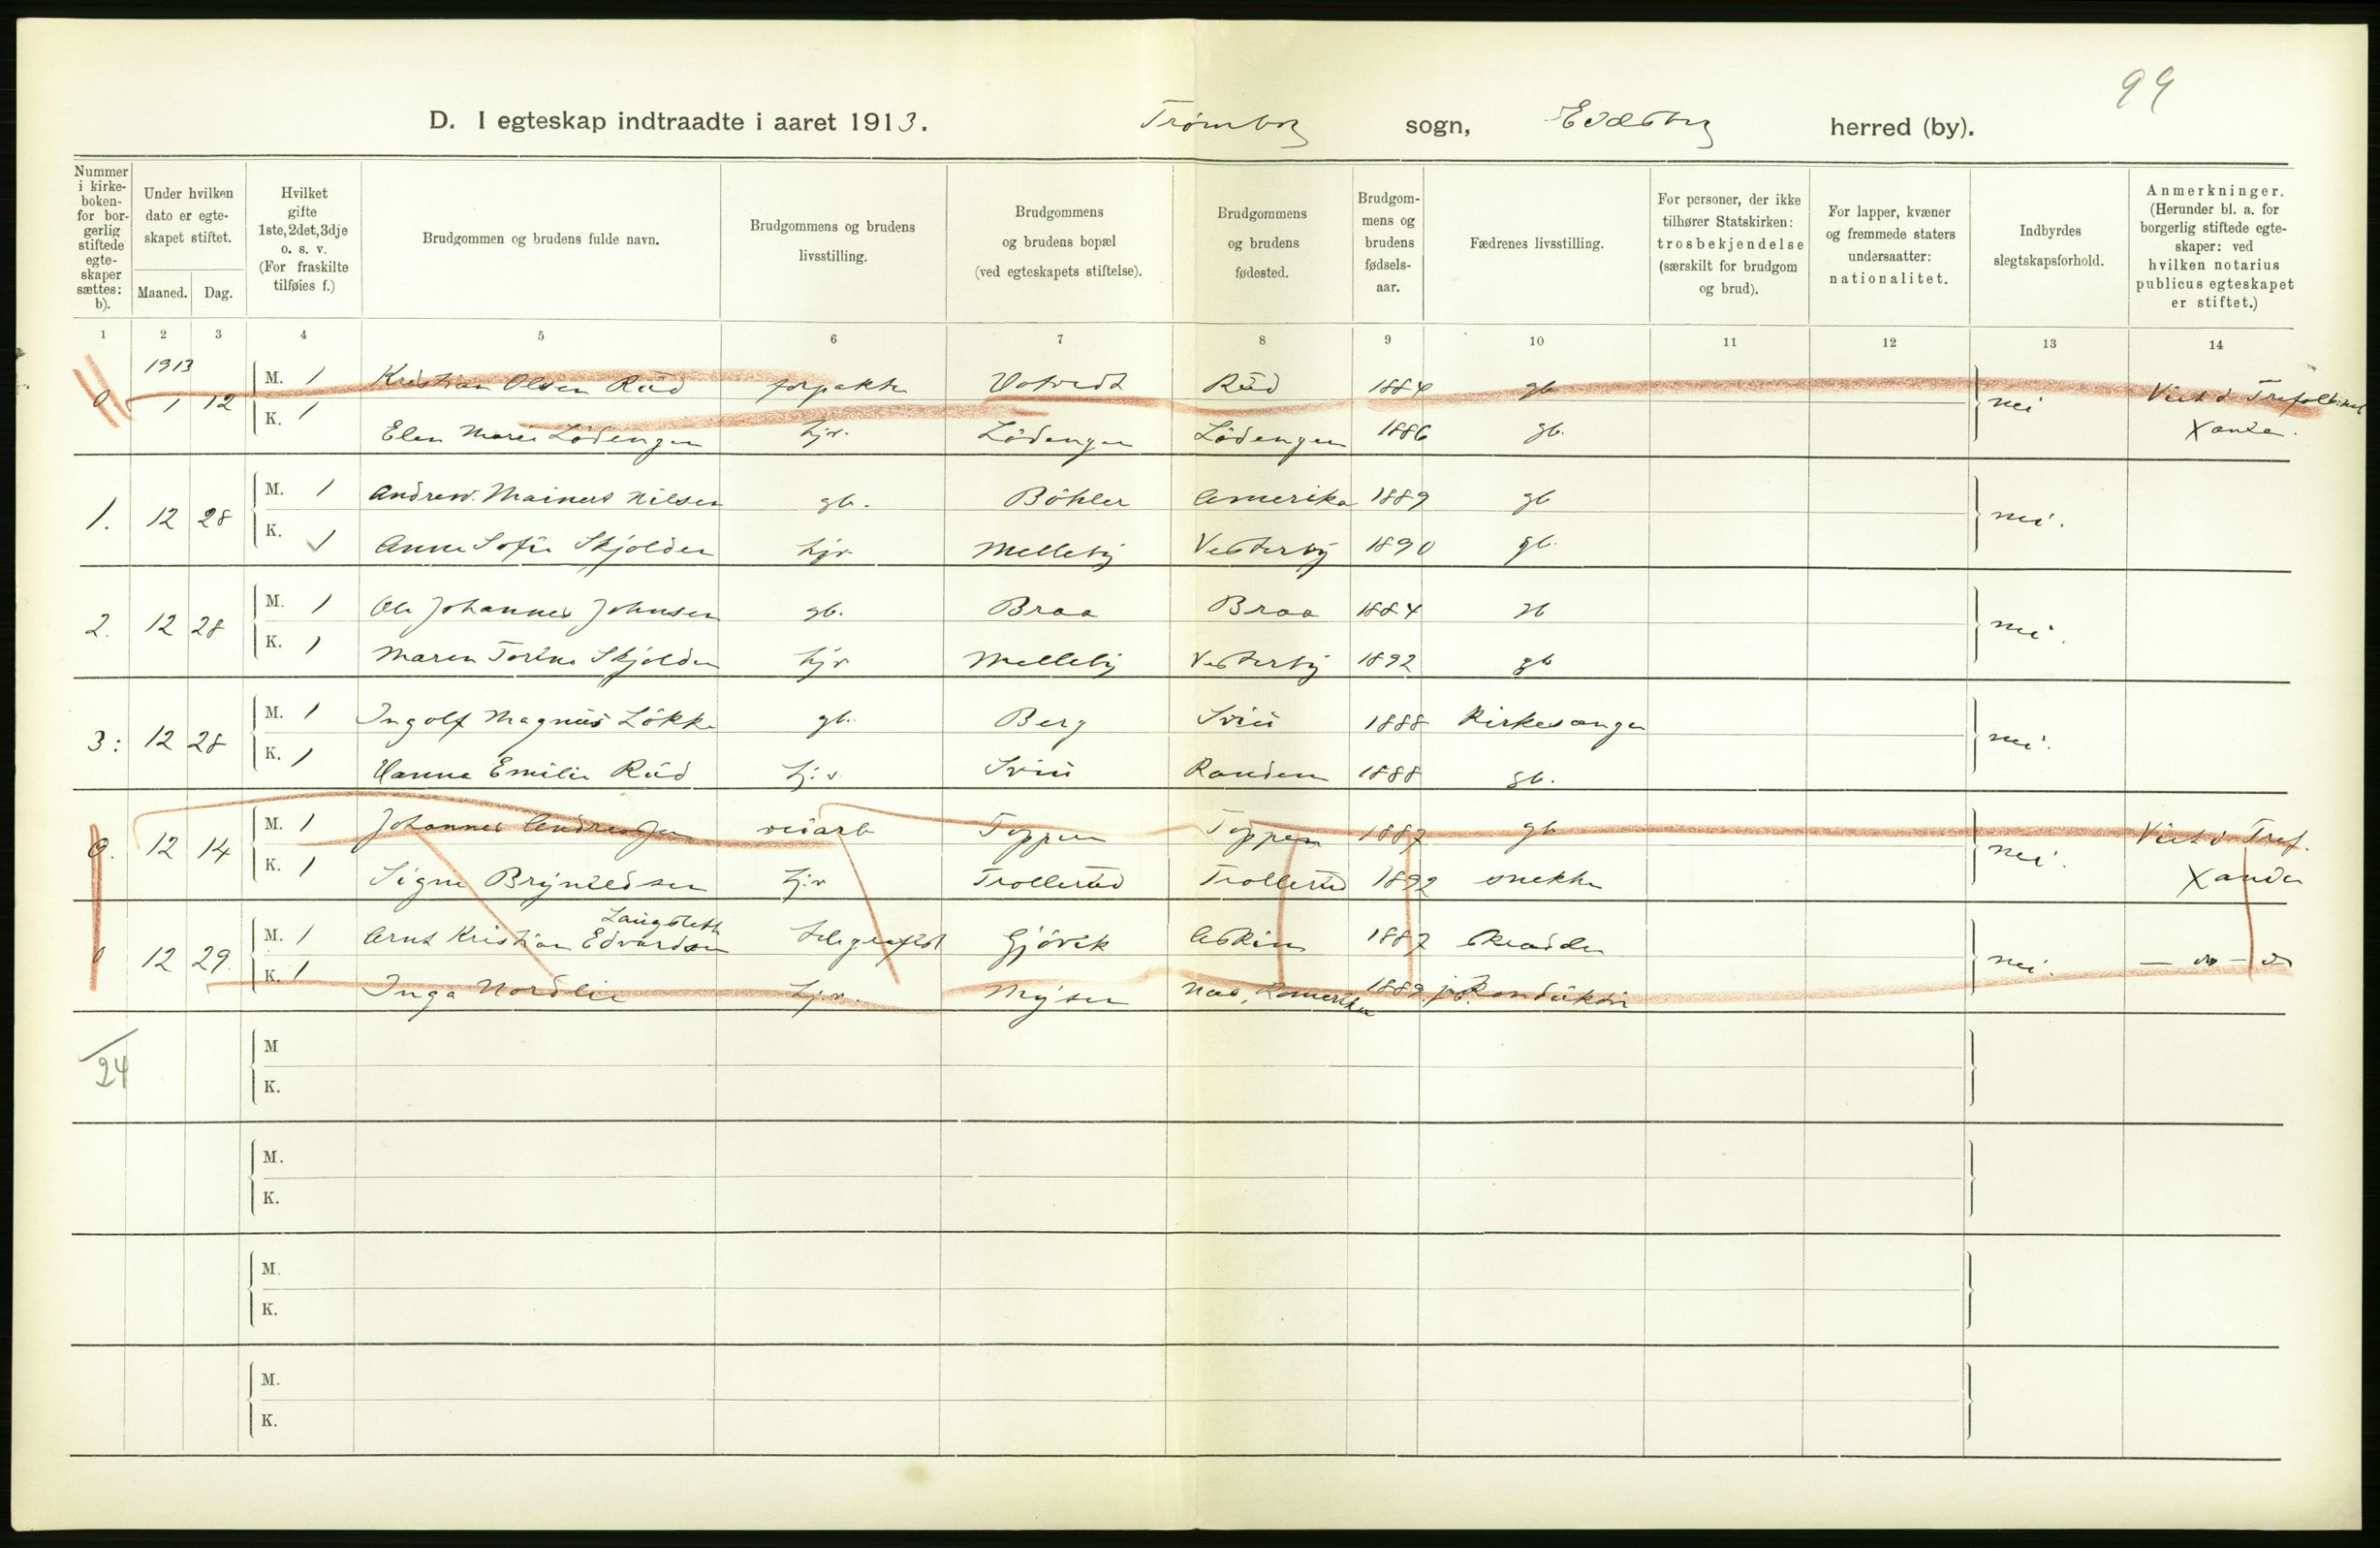 99
D. I egteskap indtraadte i aaret 1913. Trømborg sogn, Eidsberg herred (by).
Nummer i kirkeboken for borgerlig stiftede egteskaper sættes: b).
Under hvilken dato er egteskapet stiftet.
Maaned. Dag.
Hvilket gifte 1ste, 2det, 3dje o. s. v. (For fraskilte tilføies f.)
Brudgommen og brudens fulde navn.
Brudgommens og brudens livsstilling.
Brudgommens og brudens bopæl (ved egteskapets stiftelse).
Brudgommens og brudens fødested.
Brudgommens og brudens fødselsaar.
Fædrenes livsstilling.
For personer, der ikke tilhører Statskirken: trosbekjendelse (særskilt for brudgom og brud).
For lapper, kvæner og fremmede staters undersaatter: nationalitet.
Indbyrdes slegtskapsforhold.
Anmerkninger. (Herunder bl. a. for borgerlig stiftede egteskaper: ved hvilken notarius publicus egteskapet er stiftet.)
1 2 3 4 5 6 7 8 9 10 11 12 13 14
1913
0 1 12 M. 1 Kristian Olsen Rud forpakter Rud 1884 gb nei Viet i
K. 1 Elen Marie Lödengen hjv. Lödengen Lödengen 1886 gb.
1. 12 28 M. 1 Andrew Mainert Nilsen gb. Böhler Amerika 1889 gb nei.
K. 1 Anne Sofie Skjolden hjv Melleby Vesterby 1890 gb.
2. 12 28 M. 1 Ole Johannes Johnsen gb. Braa Braa 1884 gb nei.
K. 1 Maren Torine Skjolden hjv Melleby Vesterby 1892 gb
3: 12 28 M. 1 Ingolf Magnus Lökke gb. Berg 1888 Kirkesanger nei.
K. 1 Hanna Emilie Rud hjv. Randem 1888 gb.
0. 12 14 M. 1 Johannes Andersen Toppen Toppen 1887 gb nei. Viet i Tref.
K. 1 Signe Brynildsen hjv Trollerud Trollerud 1892 snekker
0 12 29. M. 1 Arnt Kristian Edvardsen Langsleth telegrafist Gjövik Askim 1887 skrædder nei. — do — do
K. 1 Inga Nordlie hjv. Mysen Nes, Romerike 1889. jb.konduktör
24
M
K.
M.
K.
M.
K.
M.
K.